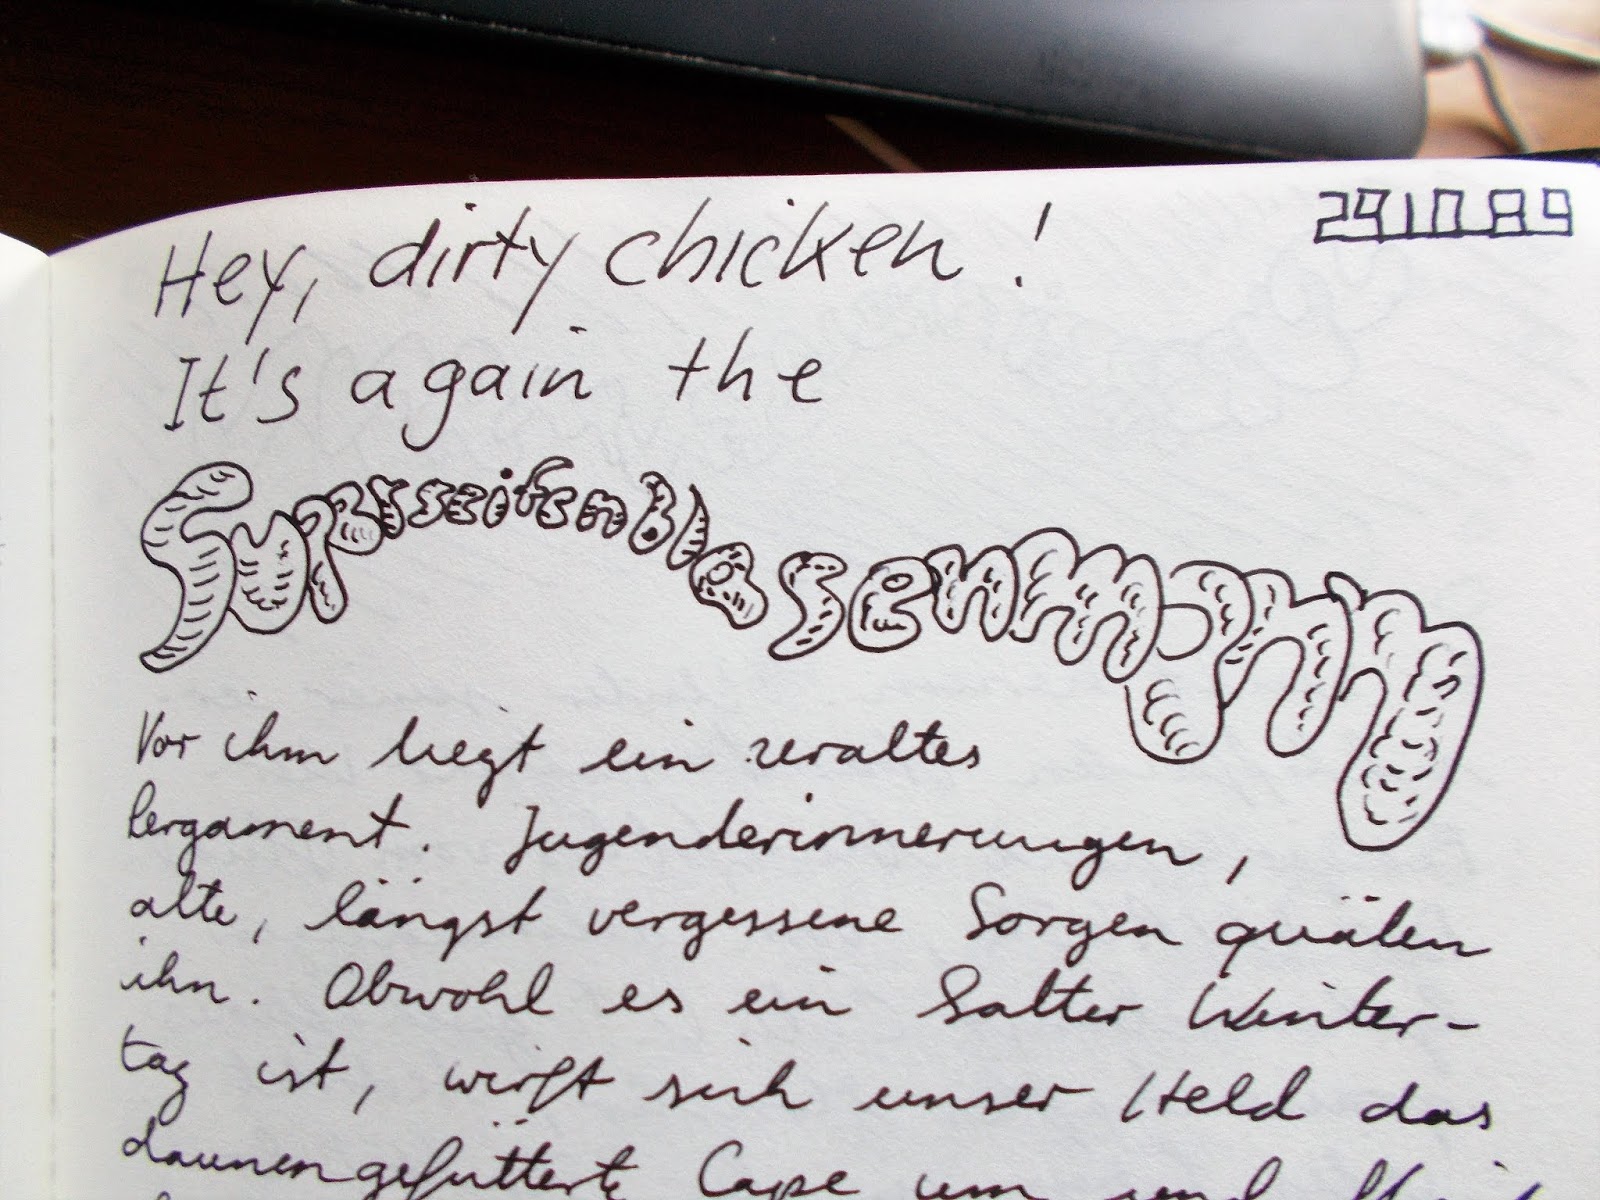 29.10.89
Hey, dirty chicken!
It's again the
Superseifenblasenmann
Vor ihm liegt ein uraltes
Pergament. Jugenderinnerungen,
alte, längst vergessene Sorgen quälen
ihn. Obwohl es ein kalter Winter-
tag ist, wirft sich unser Held das
daunengefütterte Cape um und